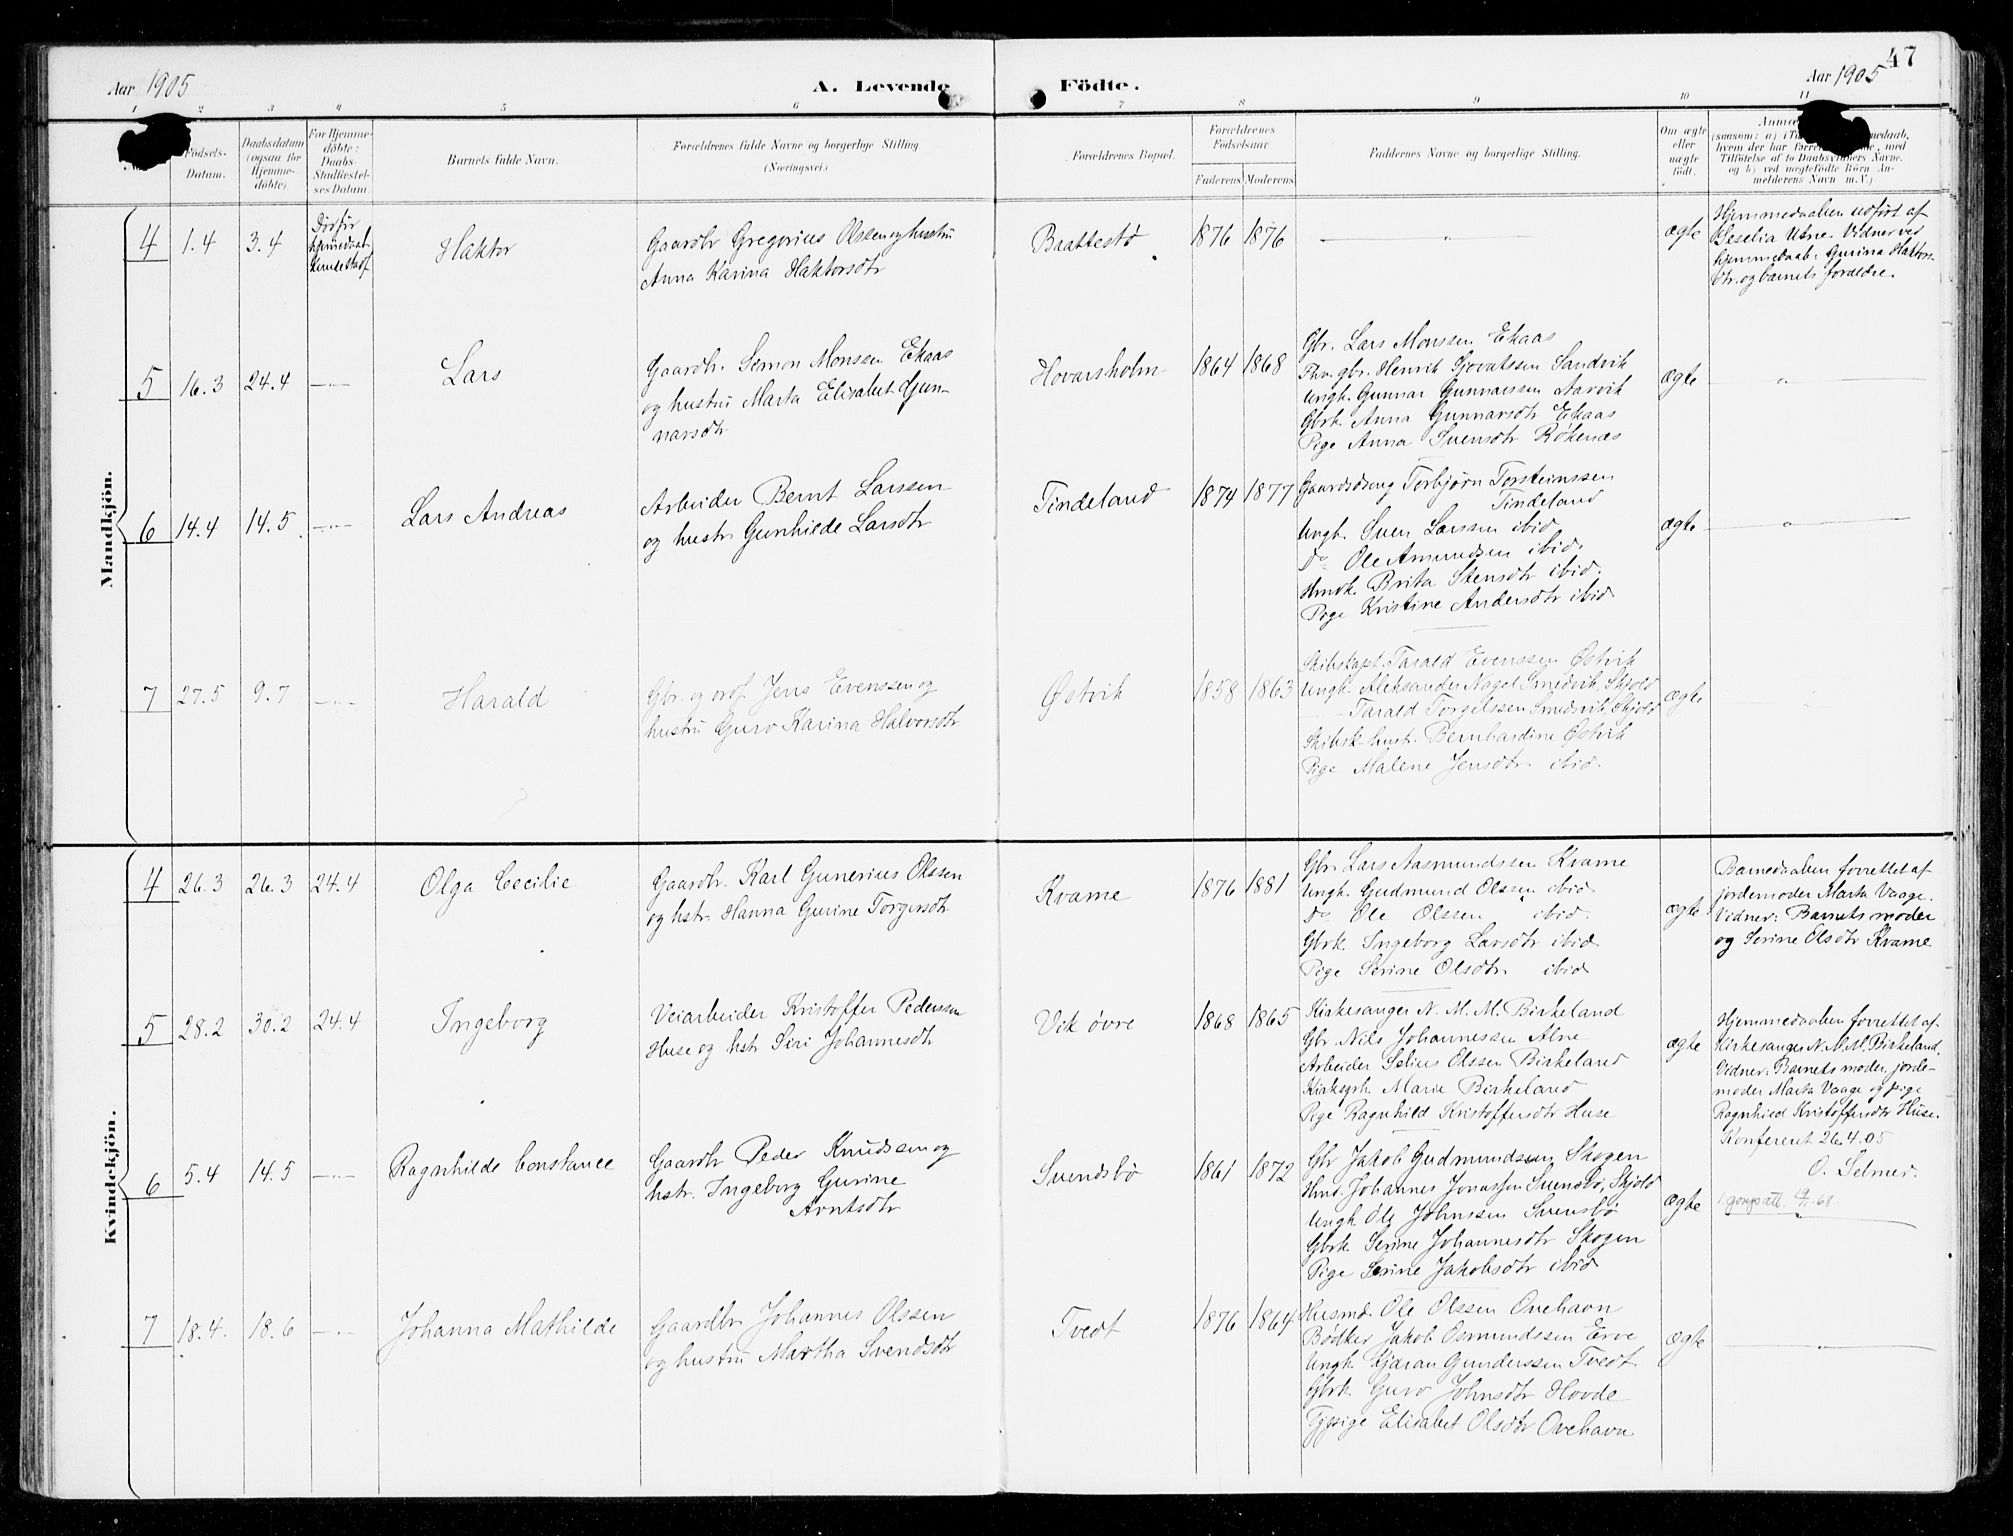 47
Aar 1905
A. Levende
Födte.
Aar 1905
1 2 3 4 5 6 7 8 9 10 11
Födsels-
Datum.
Daabsdatum
(ogsaa for
Hjemme-
döbte).
For Hjemme-
döbte:
Daabs-
Stadfæstel-
ses Datum.
Barnets fulde Navn.
Forældrenes fulde Navne og borgerlige Stilling
(Næringsvei.)
Forældrenes Bopæl.
Forældrenes
Födselsaar.
Faderens Moderens
Faddernes Navne og borgerlige Stilling.
Om ægte
eller
uægte
födt.
hvem der har
Tilföielse af to Daabsvidners Navne.
og b) ved uægtefödte Börn An-
melderens Navn m.V.)
Mandkjön.
4 1.4 3.4
Død før
hjemmedaab.
Haktor
Gaardbr Gregorius Olssen og hustru
Anna Karina Haktorsdtr
Braattestø
1876 1876
ægte
Hjemmedaaben udført af
Seselia Utne. Vidner ved
hjemmedaab: Gurina Haktors-
dtr. og barnets forældre.
5 16.3 24.4
Lars
Gaardbr. Simon Monssen Ekaas
og hustru Marta Elisabet Gun-
narsdtr
Hovarsholm
1864 1868
Gbr. Lars Monssen Ekaas
Fhv. gbr. Henrik Sjovatssen Sandvik
Ungk. Gunnar Gunnarssen Aarvik
Gbrk. Anna Gunnarsdtr Ekaas
Pige Anna Svensdtr Røkenæs
ægte
6 14.4 14.5
Lars Andreas
Arbeider Bernt Larssen
og hustr Gunhilde Larsdtr
Tindeland
1874 1877
Gaardsdreng Torbjørn Torsteinssen
Tindeland
Ungk. Sven Larssen ibid
Do Ole Amundsen ibid.
Hmdk. Brita Stensdtr ibid.
Pige Kristine Andersdtr ibid
ægte
7 27.5 9.7
Harald
Gbr. og ordf. Jens Evenssen og
hustru Guro Karina Halvorsdtr
Østvik
1858 1863
Skibskapt. Tarald Evenssen Østvik
Ungk. Aleksander Nagel Smedvik, Skjold
Tarald Torgelssen Smedvik, Skjold
Skibsk-hustr. Bernhardine Østvik
Pige Malene Jensdtr ibid.
ægte
Kvindekjön.
4 26.3 26.3 24.4
Olga Cecilie
Gaardbr. Karl Gunerius Olssen
og hstr. Hanna Gurine Torgersdtr
Kvame
1876 1881
Gbr Lars Aasmundssen Kvame
Ungk. Gudmund Olssen ibid
Do Ole Olssen ibid.
Gbrk. Ingeborg Larsdtr ibid
Pige Serine Olsdtr. ibid
ægte
Barnedaaben forrettet af
jordemoder Marta Vaage.
Vidner: Barnets moder
og Serine Olsdtr Kvame
5 28.2 30.2 24.4
Ingeborg
Veiarbeider Kristoffer Pedersen
Huse og hstr Siri Johannesdtr
Vik øvre
1868 1865
Kirkesanger N. M. M. Birkeland
Gbr. Nils Johannessen Alne
Arbeider Selius Olssen Birkeland
Kirksgrk. Marie Birkeland
Pige Ragnhild Kristoffersdtr Huse
ægte
Hjemmedaaben forrettet af
Kirkesanger N. M. M. Birkeland.
Vidner: Barnets moder, jorde-
moder Marta Vaage og pige
Ragnhild Kristoffersdtr Huse.
Konfereret 26.4.05
O. Selmer.
6 5.4 14.5
Ragnhilde Constance
Gaardbr Peder Knudssen og
hstr. Ingeborg Gurine
Arntsdtr
Svendsbø
1861 1872
Gbr Jakob Gudmundssen Skogen
Hmd. Johannes Jonassen Svensbø, Skjold
Ungk Ole Johnssen Svensbø
Gbrk. Serine Johannesdtr Skogen
Pige Serine Jakobsdtr ibid
ægte
7 18.4. 18.6
Johanna Mathilde
Gaardbr. Johannes Olssen
og hustru Martha Svendsdtr
Tvedt
1876 1864
Husmd. Ole Olssen Ovehavn
Bødker Jakob Osmundssen Erve
Ungk. Kjaran Gunderssen Tvedt.
Gbrk Guro Johnsdtr Hovde
Tjpige Elisabet Olsdtr Ovehavn
ægte